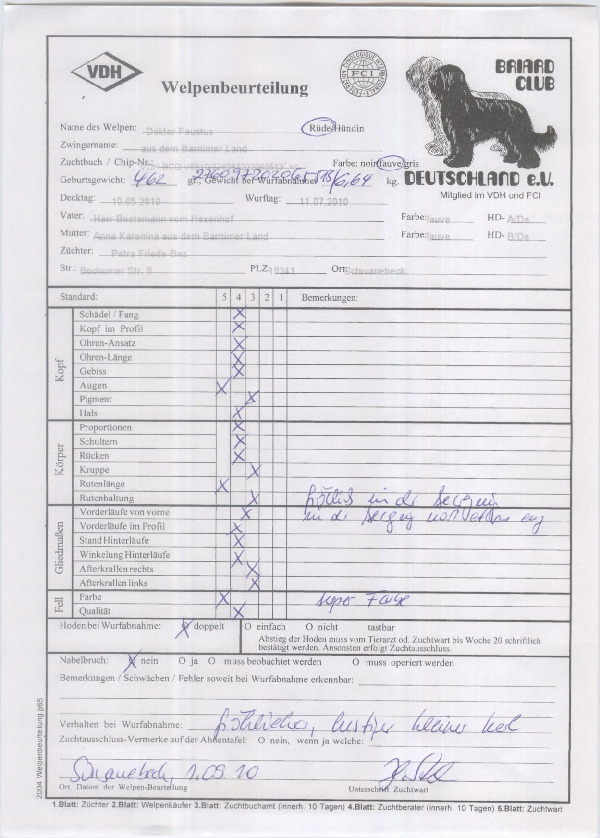 VDH
Welpenbeurteilung
FCI
BRIARD
CLUB
DEUTSCHLAND e.V.
Mitglied im VDH und FCI
Name des Welpen: Doktor Faustus Rüde/Hündin
Zwingername: aus dem Barnimer Land
Zuchtbuch / Chip-Nr.: Farbe: noir/fauve/gris
Geburtsgewicht: 462 gr. Gewicht bei Wurfabnahme: 6,64 kg.
Decktag: 10.05.2010 Wurftag: 11.07.2010
Vater: Herr Bootsmann vom Hexenhof Farbe: fauve HD- A/De
Mutter: Anna Karenina aus dem Barnimer Land Farbe: fauve HD- B/De
Züchter: Petra Friede-Baz
Str.: Bochumer Str. 8 PLZ: 16341 Ort: Schwanebeck
Standard: 5 4 3 2 1 Bemerkungen:
Kopf
Schädel / Fang X
Kopf im Profil X
Ohren-Ansatz X
Ohren-Länge X
Gebiss X
Augen X
Pigment X
Hals X
Körper
Proportionen X
Schultern X
Rücken X
Kruppe X
Rutenlänge X
Rutenhaltung X fröhlich in der Bewegung
Gliedmaßen
Vorderläufe von vorne X in der Bewegung noch etwas eng
Vorderläufe im Profil X
Stand Hinterläufe X
Winkelung Hinterläufe X
Afterkrallen rechts X
Afterkrallen links X
Fell
Farbe X super Farbe
Qualität X
Hoden bei Wurfabnahme: X doppelt O einfach O nicht tastbar
Abstieg der Hoden muss vom Tierarzt od. Zuchtwart bis Woche 20 schriftlich
bestätigt werden. Ansonsten erfolgt Zuchtausschluss.
Nabelbruch: X nein O ja O muss beobachtet werden O muss operiert werden
Bemerkungen / Schwächen / Fehler soweit bei Wurfabnahme erkennbar:
Verhalten bei Wurfabnahme: fröhlicher, lustiger kleiner Kerl
Zuchtausschluss-Vermerke auf der Ahnentafel: O nein, wenn ja welche:
Schwanebeck, 1.09.10
Ort, Datum der Welpen-Beurteilung Unterschrift Zuchtwart
2004 Welpenbeurteilung p65
1.Blatt: Züchter 2.Blatt: Welpenkäufer 3.Blatt: Zuchtbuchamt (innerh. 10 Tagen) 4.Blatt: Zuchtberater (innerh. 10 Tagen) 5.Blatt: Zuchtwart